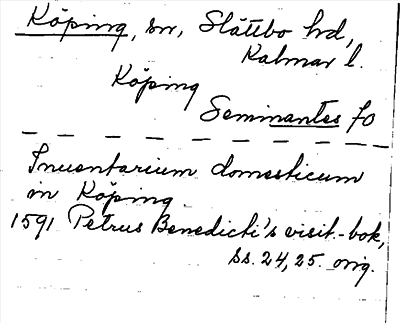 Köping, sn, Slättbo hd,
Kalmar l.
Köping
Seminantes fo
Inuentarium domesticum
in Köping
1591 Petrus Benedicti's visit.-bok,
ss. 24, 25. orig.